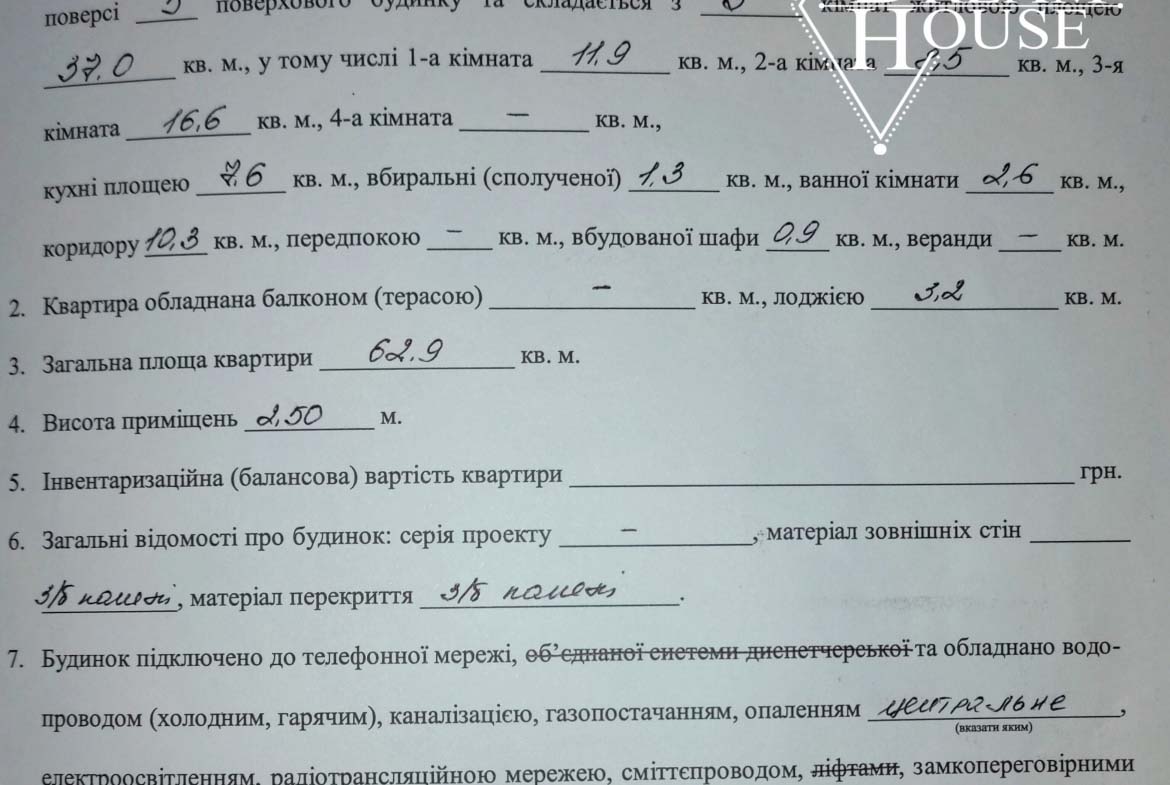 поверсі 5 поверхового будинку та складається з 3 кімнат житловою площею
HOUSE
37,0 кв. м., у тому числі 1-а кімната 11,9 кв. м., 2-а кімната 8,5 кв. м., 3-я
кімната 16,6 кв. м., 4-а кімната — кв. м.,
кухні площею 7,6 кв. м., вбиральні (сполученої) 1,3 кв. м., ванної кімнати 2,6 кв. м.,
коридору 10,3 кв. м., передпокою — кв. м., вбудованої шафи 0,9 кв. м., веранди — кв. м.
2. Квартира обладнана балконом (терасою) — кв. м., лоджією 3,2 кв. м.
3. Загальна площа квартири 62.9 кв. м.
4. Висота приміщень 2,50 м.
5. Інвентаризаційна (балансова) вартість квартири грн.
6. Загальні відомості про будинок: серія проекту — , матеріал зовнішніх стін
з/б панелі, матеріал перекриття з/б панелі.
7. Будинок підключено до телефонної мережі, об’єднаної системи диспетчерської та обладнано водо-
проводом (холодним, гарячим), каналізацією, газопостачанням, опаленням центральне,
(вказати яким)
електроосвітленням, радіотрансляційною мережею, сміттєпроводом, ліфтами, замкопереговірними